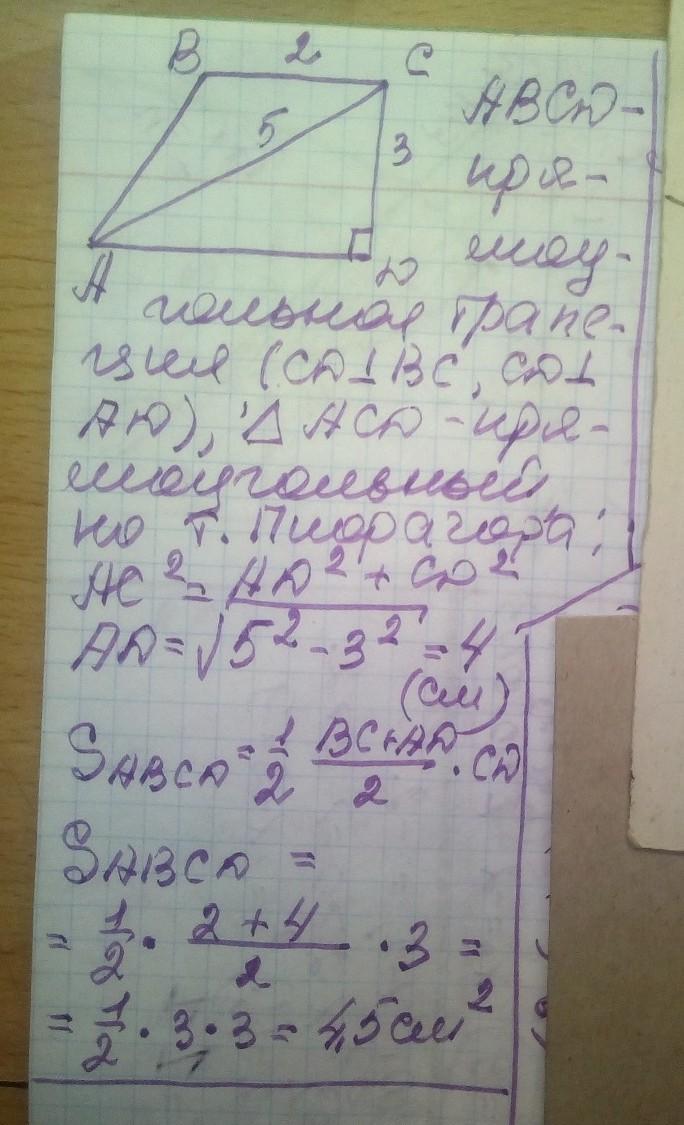 B 2 C
5
3
A
D
ABCD-
пря-
моу-
гольная трапе-
ция (CD⊥BC, CD⊥
AD), △ACD - пря-
моугольный
по т. Пиорагора:
AC² = AD² + CD²
AD = √5² - 3² = 4
(см)
S ABCD = 1/2 BC+AD/2 · CD
S ABCD =
= 1/2 · 2+4/2 · 3 =
= 1/2 · 3 · 3 = 4,5 см²